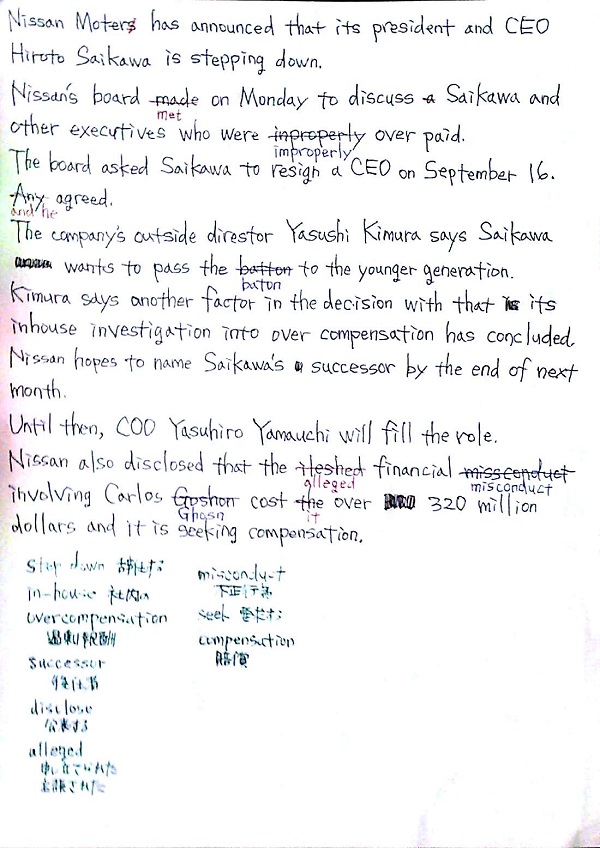 Nissan Moters has announced that its president and CEO
Hiroto Saikawa is stepping down.
Nissan's board made on Monday to discuss a Saikawa and
met
other executives who were inproperly over paid.
improperly
The board asked Saikawa to resign a CEO on September 16.
Any agreed.
and he
The company's outside direstor Yasushi Kimura says Saikawa
wants to pass the batton to the younger generation.
baton
Kimura says another factor in the decision with that its
inhouse investigation into over compensation has concluded.
Nissan hopes to name Saikawa's successor by the end of next
month.
Until then, COO Yasuhiro Yamauchi will fill the role.
Nissan also disclosed that the financial missconduct
alleged misconduct
involving Carlos Goshon cost the over 320 million
Ghosn it
dollars and it is seeking compensation.
step down 辞任する
in-house 社内の
overcompensation
過剰報酬
successor
後任者
disclose
公表する
alleged
申し立てられた
主張された
misconduct
不正行為
seek
compensation
賠償